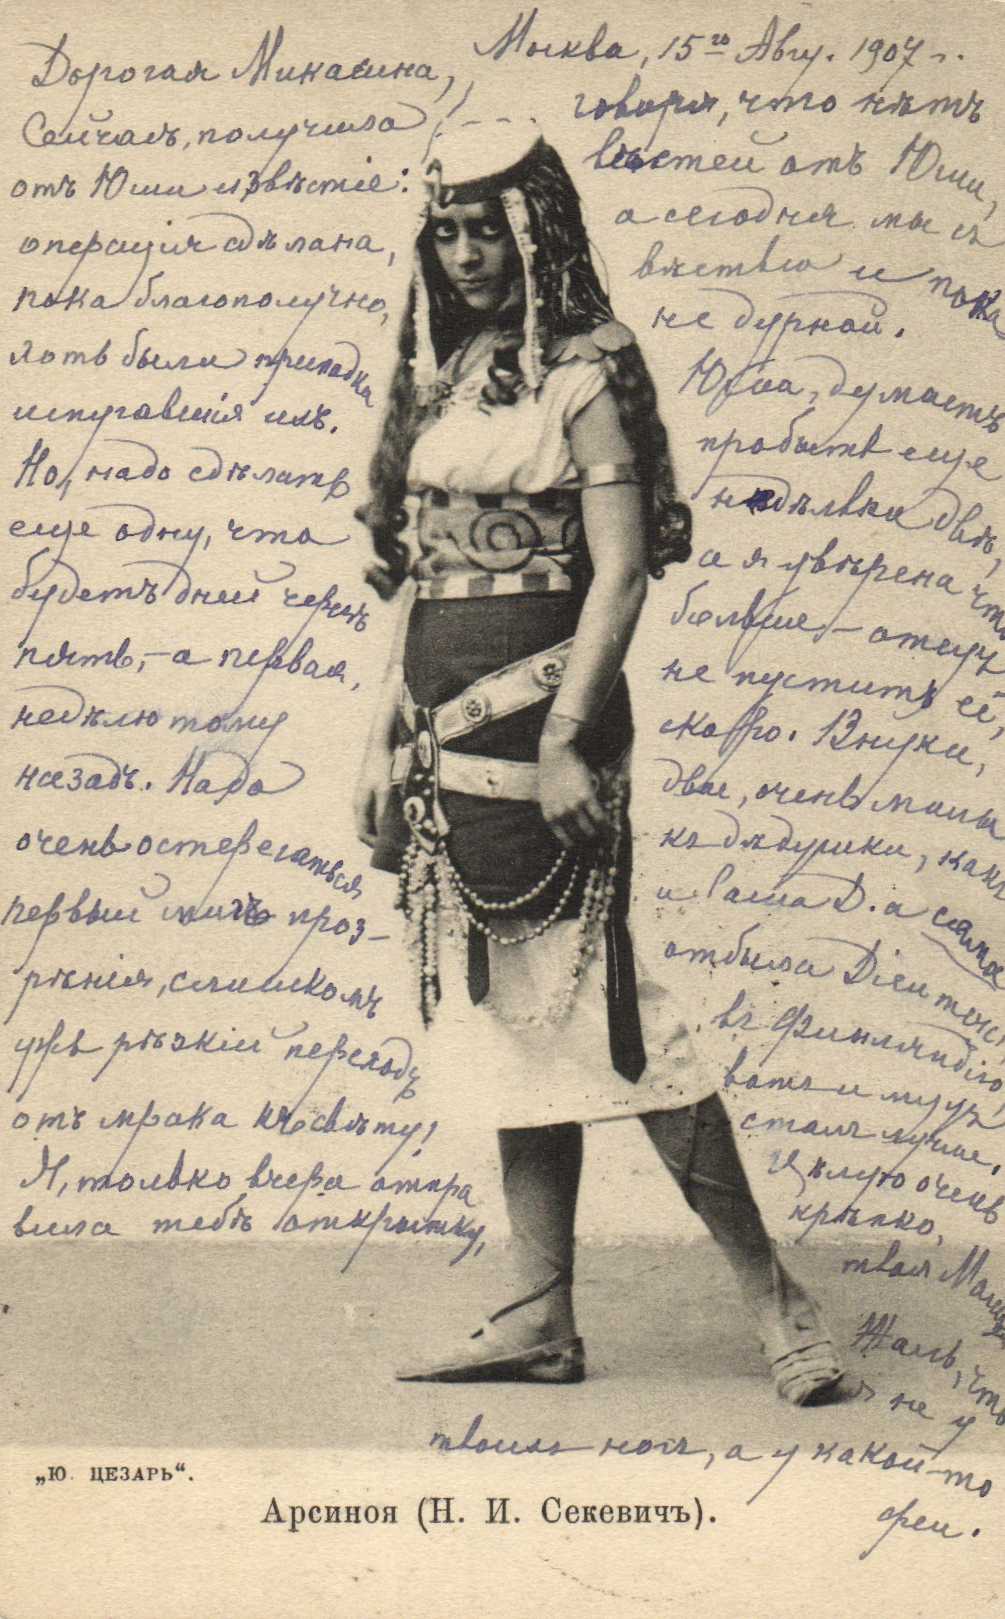 Москва, 15го Авгу. 1907 г.
Дорогая
Сейчасъ, получила
отъ Юши извѣстіе:
операція сдѣлана,
пока благополучно,
хоть были припадки
испугавшія ихъ.
Но, надо сдѣлать
еще одну, что
будетъ дней черезъ
пять, – а первая,
недѣлю тому
назадъ. Надо
очень остерегаться
первый мигъ проз-
рѣнія, слишкомъ
ужъ рѣзкій переходъ
отъ мрака къ свѣту,
Я, только вчера отпра
вила тебѣ открытку,
говоря, что нѣтъ
вѣстей отъ Юши,
а сегодня мы съ
вѣстью и пока
не дурной.
Юша, думаетъ
пробыть еще
недѣльки двѣ,
а я увѣрена что
больше, – отецъ
не пуститъ её,
скоро. Внуки,
двое, очень милы
къ дѣдушки, какъ
и Саша D. а сама
отбыла
въ Финляндію
вотъ и мужъ
сталъ лучше.
Цѣлую очень
крѣпко,
твоя
Жаль, что
я не у
твоихъ ногъ, а у какой-то
феи.
„Ю. ЦЕЗАРЬ“.
Арсиноя (Н. И. Секевичъ).